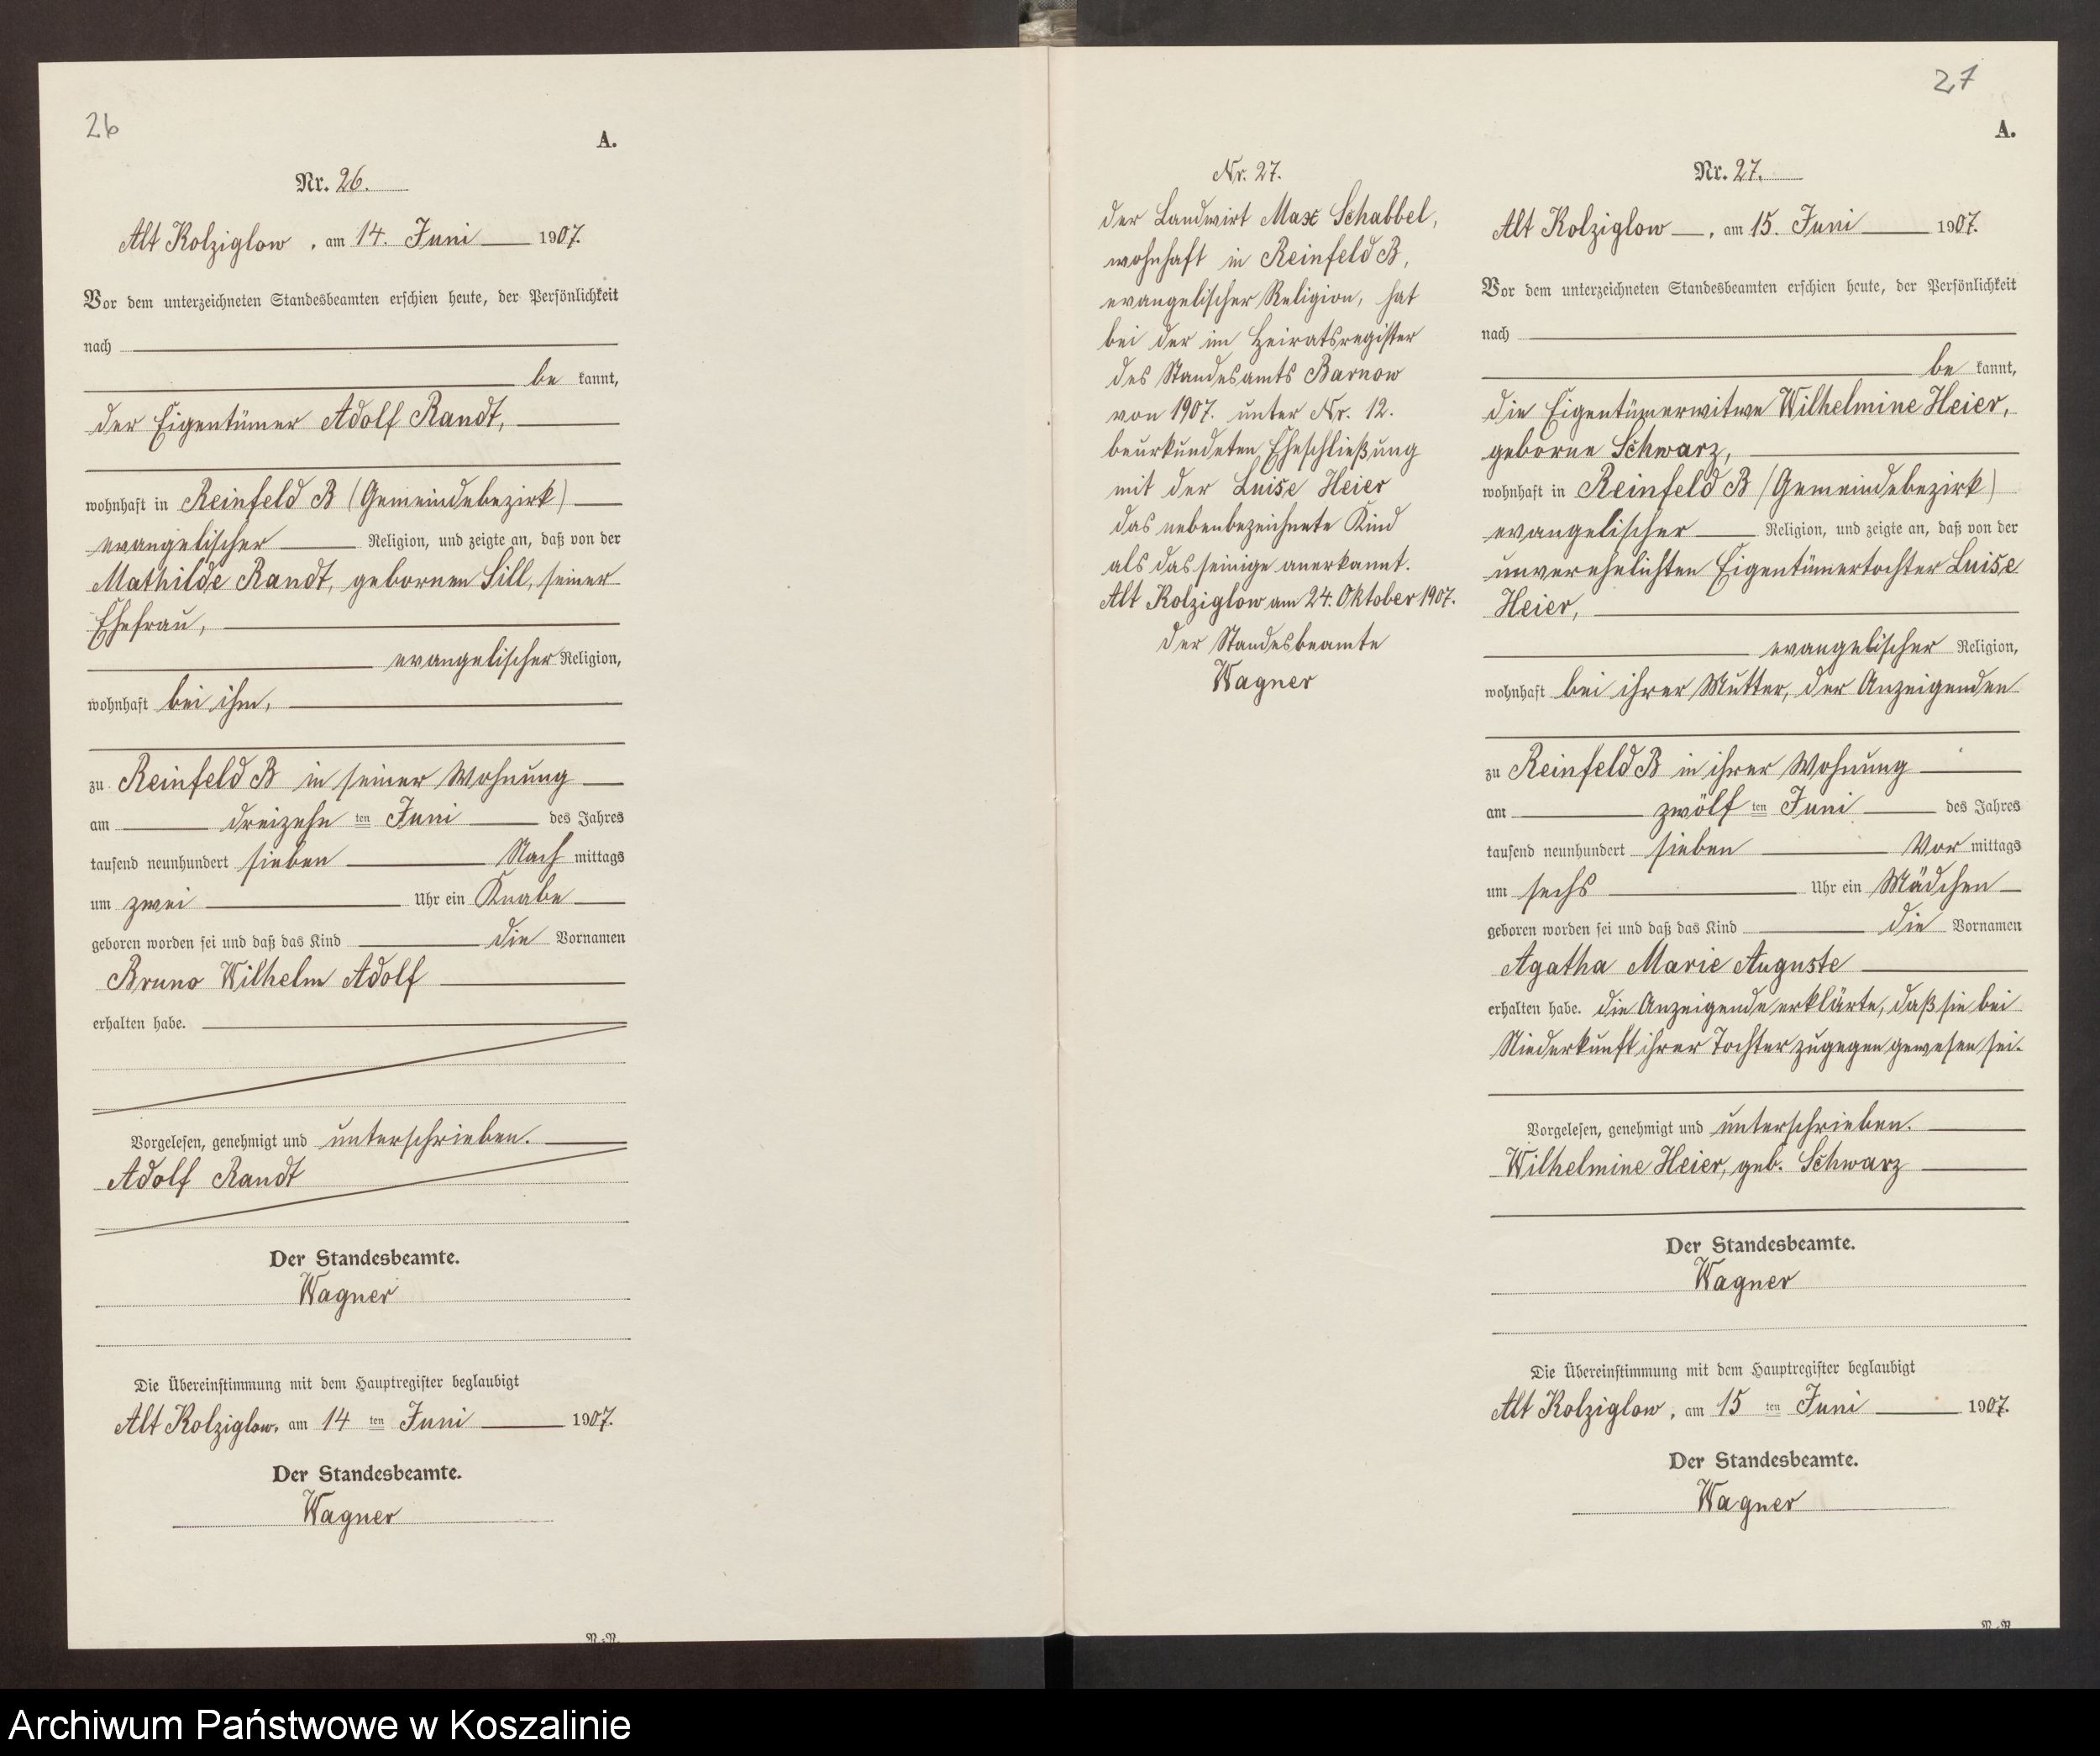 26
A.
Nr. 26.
Alt Kolziglow, am 14. Juni 1907.
Vor dem unterzeichneten Standesbeamten erschien heute, der Persönlichkeit
nach
be kannt,
der Eigentümer Adolf Randt,
wohnhaft in Reinfeld B (Gemeindebezirk)
evangelischer Religion, und zeigte an, daß von der
Mathilde Randt, gebornen Sill, seiner
Ehefrau,
evangelischer Religion,
wohnhaft bei ihm,
zu Reinfeld B in seiner Wohnung
am dreizehn ten Juni des Jahres
tausend neunhundert sieben Nach mittags
um zwei Uhr ein Knabe
geboren worden sei und daß das Kind die Vornamen
Bruno Wilhelm Adolf
erhalten habe.
Vorgelesen, genehmigt und unterschrieben.
Adolf Randt
Der Standesbeamte.
Wagner
Die Übereinstimmung mit dem Hauptregister beglaubigt
Alt Kolziglow, am 14 ten Juni 1907.
Der Standesbeamte.
Wagner
Nr. 27.
der Landwirt Max Schabbel,
wohnhaft in Reinfeld B,
evangelischer Religion, hat
bei der im Heiratsregister
des Standesamts Barnow
von 1907. unter Nr. 12.
beurkundeten Eheschließung
mit der Luise Heier
das nebenbezeichnete Kind
als das seinige anerkannt.
Alt Kolziglow am 24. Oktober 1907.
der Standesbeamte
Wagner
27
A.
Nr. 27.
Alt Kolziglow, am 15. Juni 1907.
Vor dem unterzeichneten Standesbeamten erschien heute, der Persönlichkeit
nach
be kannt,
die Eigentümerwitwe Wilhelmine Heier,
geborne Schwarz,
wohnhaft in Reinfeld B (Gemeindebezirk)
evangelischer Religion, und zeigte an, daß von der
unverehelichten Eigentümertochter Luise
Heier,
evangelischer Religion,
wohnhaft bei ihrer Mutter, der Anzeigenden
zu Reinfeld B in ihrer Wohnung
am zwölf ten Juni des Jahres
tausend neunhundert sieben Vor mittags
um sechs Uhr ein Mädchen
geboren worden sei und daß das Kind die Vornamen
Agatha Marie Auguste
erhalten habe. die Anzeigende erklärte, daß sie bei
Niederkunft ihrer Tochter zugegen gewesen sei.
Vorgelesen, genehmigt und unterschrieben.
Wilhelmine Heier, geb. Schwarz
Der Standesbeamte.
Wagner
Die Übereinstimmung mit dem Hauptregister beglaubigt
Alt Kolziglow, am 15 ten Juni 1907.
Der Standesbeamte.
Wagner
Archiwum Państwowe w Koszalinie